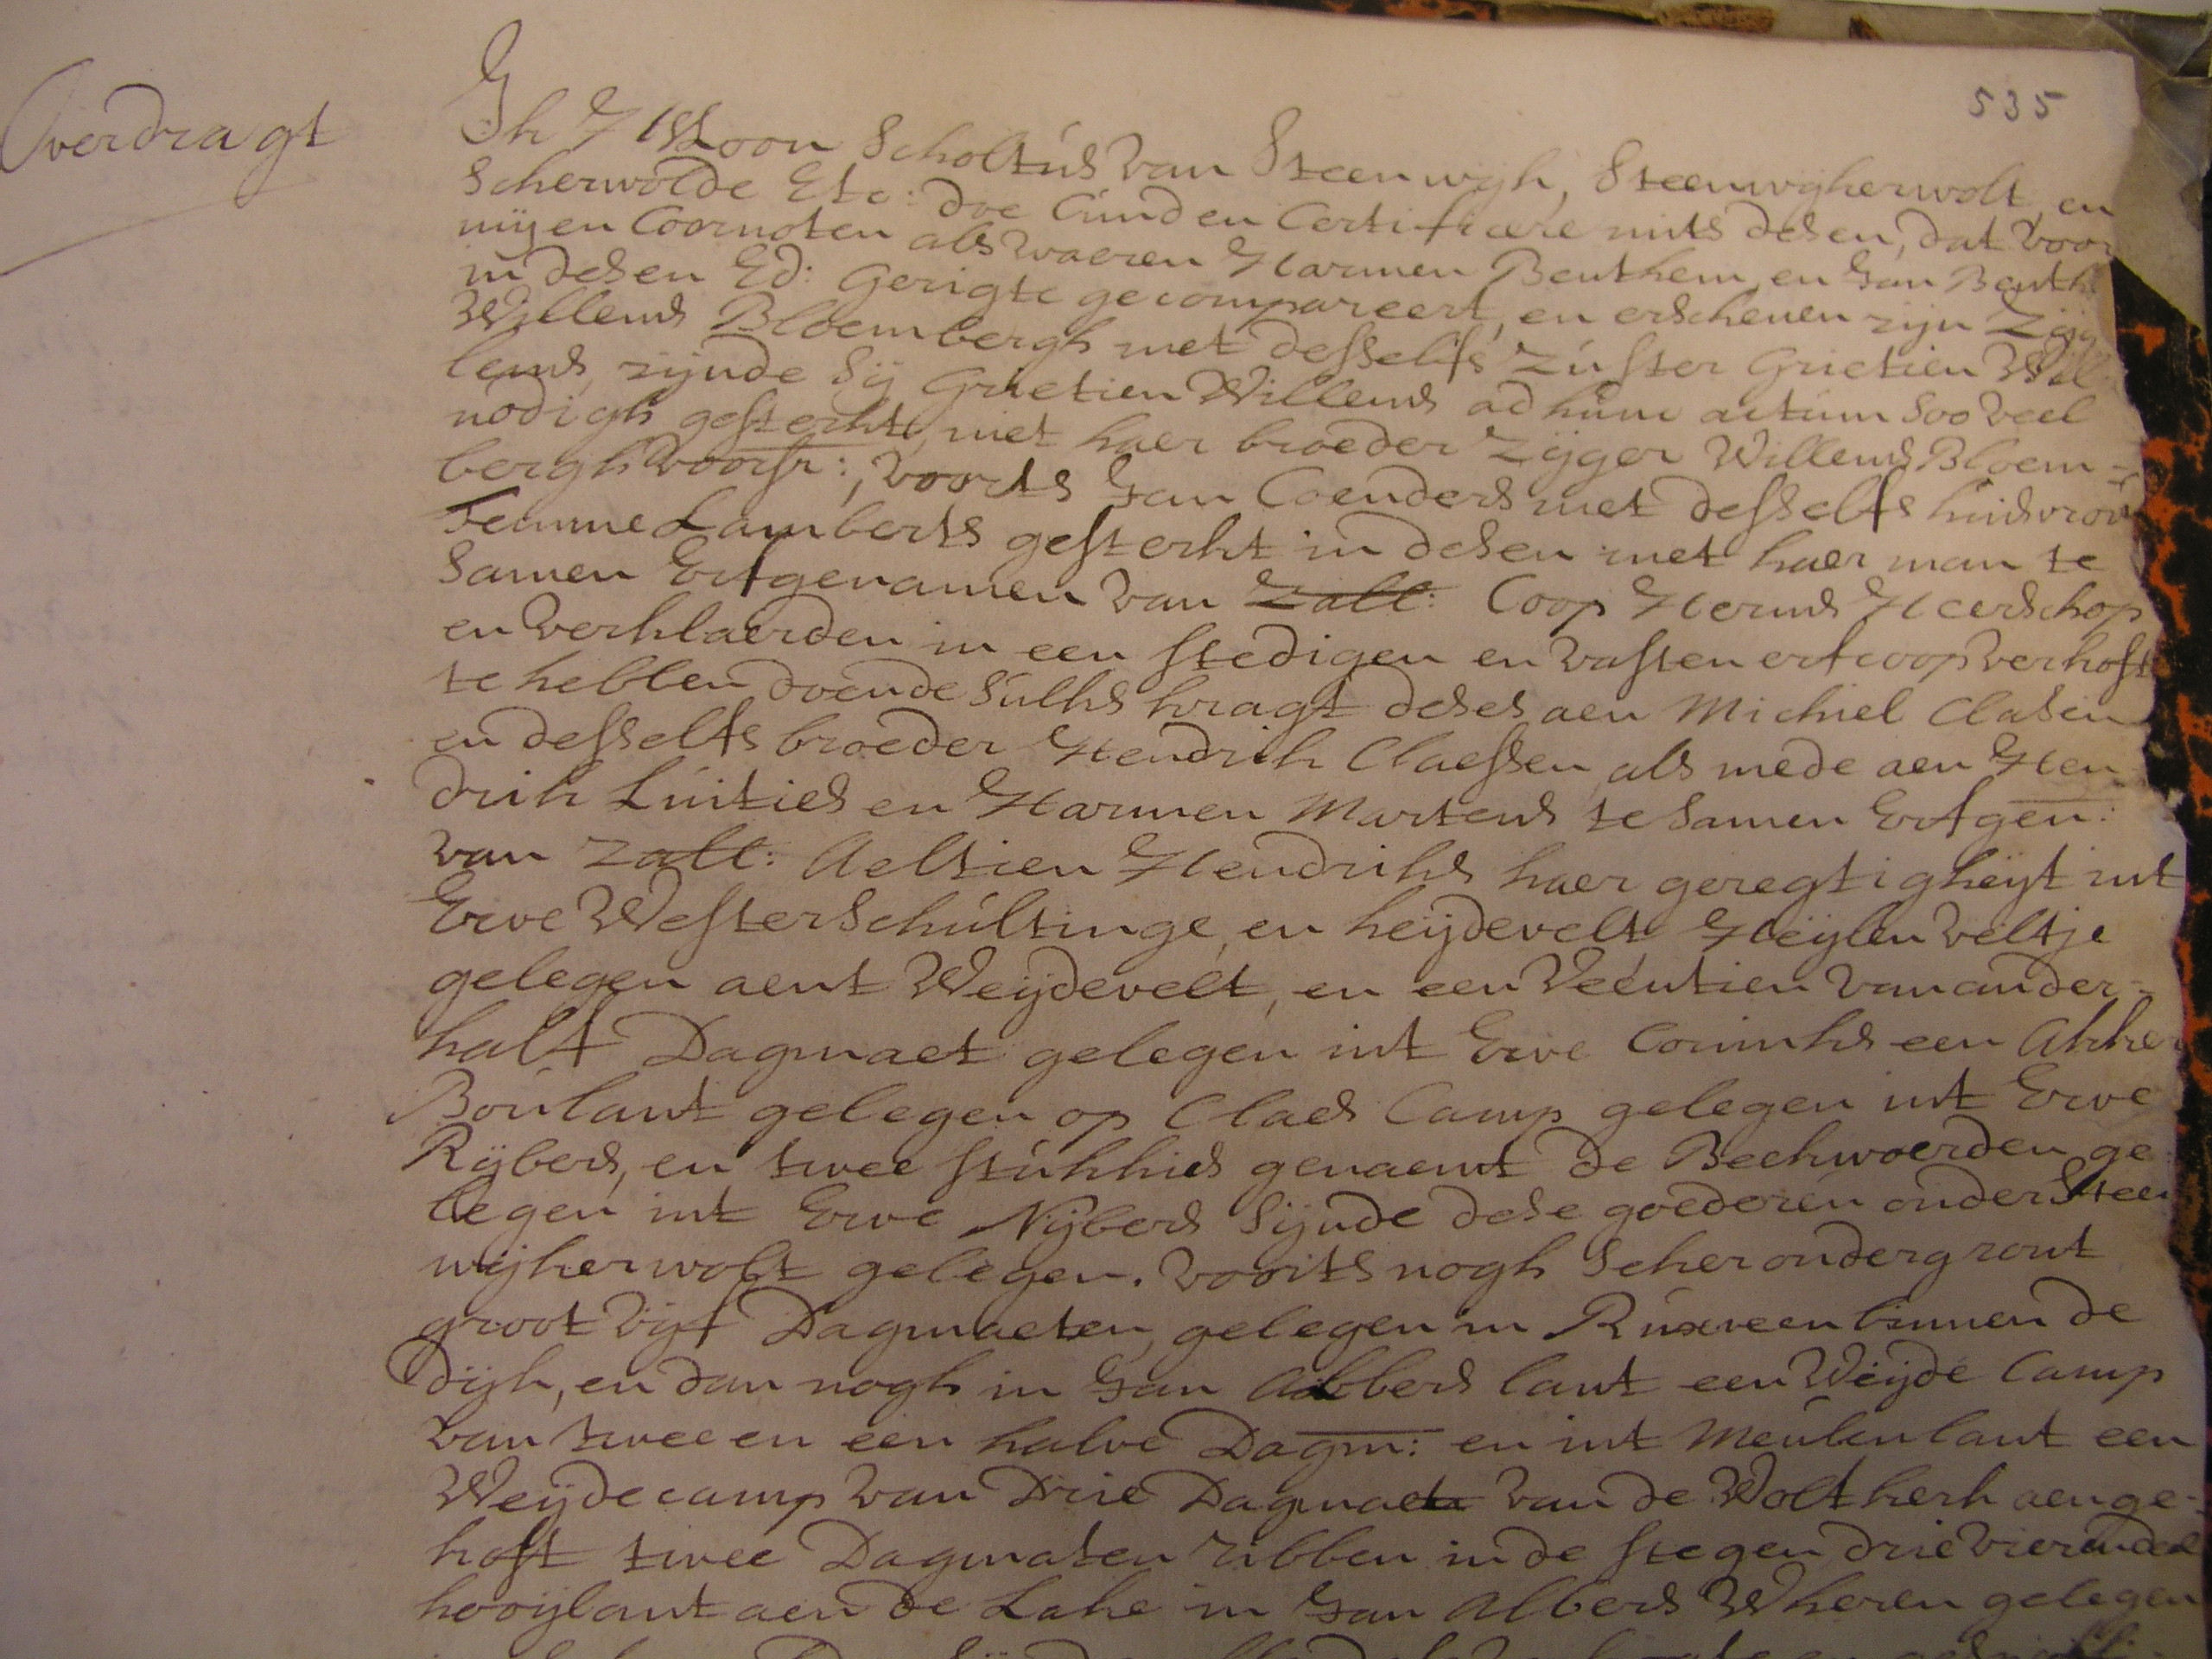 535
Overdragt
Ik H Moon Scholtus van Steenwijk, Steenwijkerwolt, en
Scherwolde Etc: doe Cund en Certificere mits desen, dat voor
mij en Coornoten als waeren Harmen Benthem, en Jan Benth
in desen Ed: Gerigte gecompareert, en erschenen zijn Zijg
Willems Bloembergh met desselfs zuster Grietien Wil
lems, zijnde Sij Grietien Willems ad hunc actum soo veel
nodigh gesterkt, met haer broeder Zijger Willems Bloem=
bergh voorsr:, voorts Jan Coenders met desselfs huisvrou
Femme Lamberts gesterkt in desen met haer man te
Samen Erfgenamen van Zall: Coop Herms Heerschop
en verklaerden in een stedigen en vasten erfcoop verkoft
te hebben doende sulks kragt deses aen Michiel Clasen
en desselfs broeder Hendrik Claessen, als mede aen Hen
drik Luities en Harmen Martens te samen Erfgen:
van zall: Aeltien Hendriks haer geregtigheijt int
Erve Westerschultinge, en heijdevelt Heijlen veltje
gelegen aent Weijdevelt, en een Veentien van ander=
half Dagmaet gelegen int Erve Couinks een Akker
Boulant gelegen op Claes Camp gelegen int Erve
Rijbers, en twee stukkies genaemt de Beekwoerden ge
legen int Erve Nijbers sijnde dese goederen onder Steen
wijkerwolt gelegen. voorts nogh seker ondergront
groot vijf Dagmaeten, gelegen in Ruxveen binnen de
dijk, en dan nogh in Jan Abbers lant een Weijde Camp
van twee en een halve Dagm: en int Meulen lant een
Weijdecamp van Drie Dagmaete van de Wolt kerk aenge=
koft twee Dagmaten ribben in de stegen drie vierendeel
hooijlant aen de Lake in Jan Albers Wheren gelegen